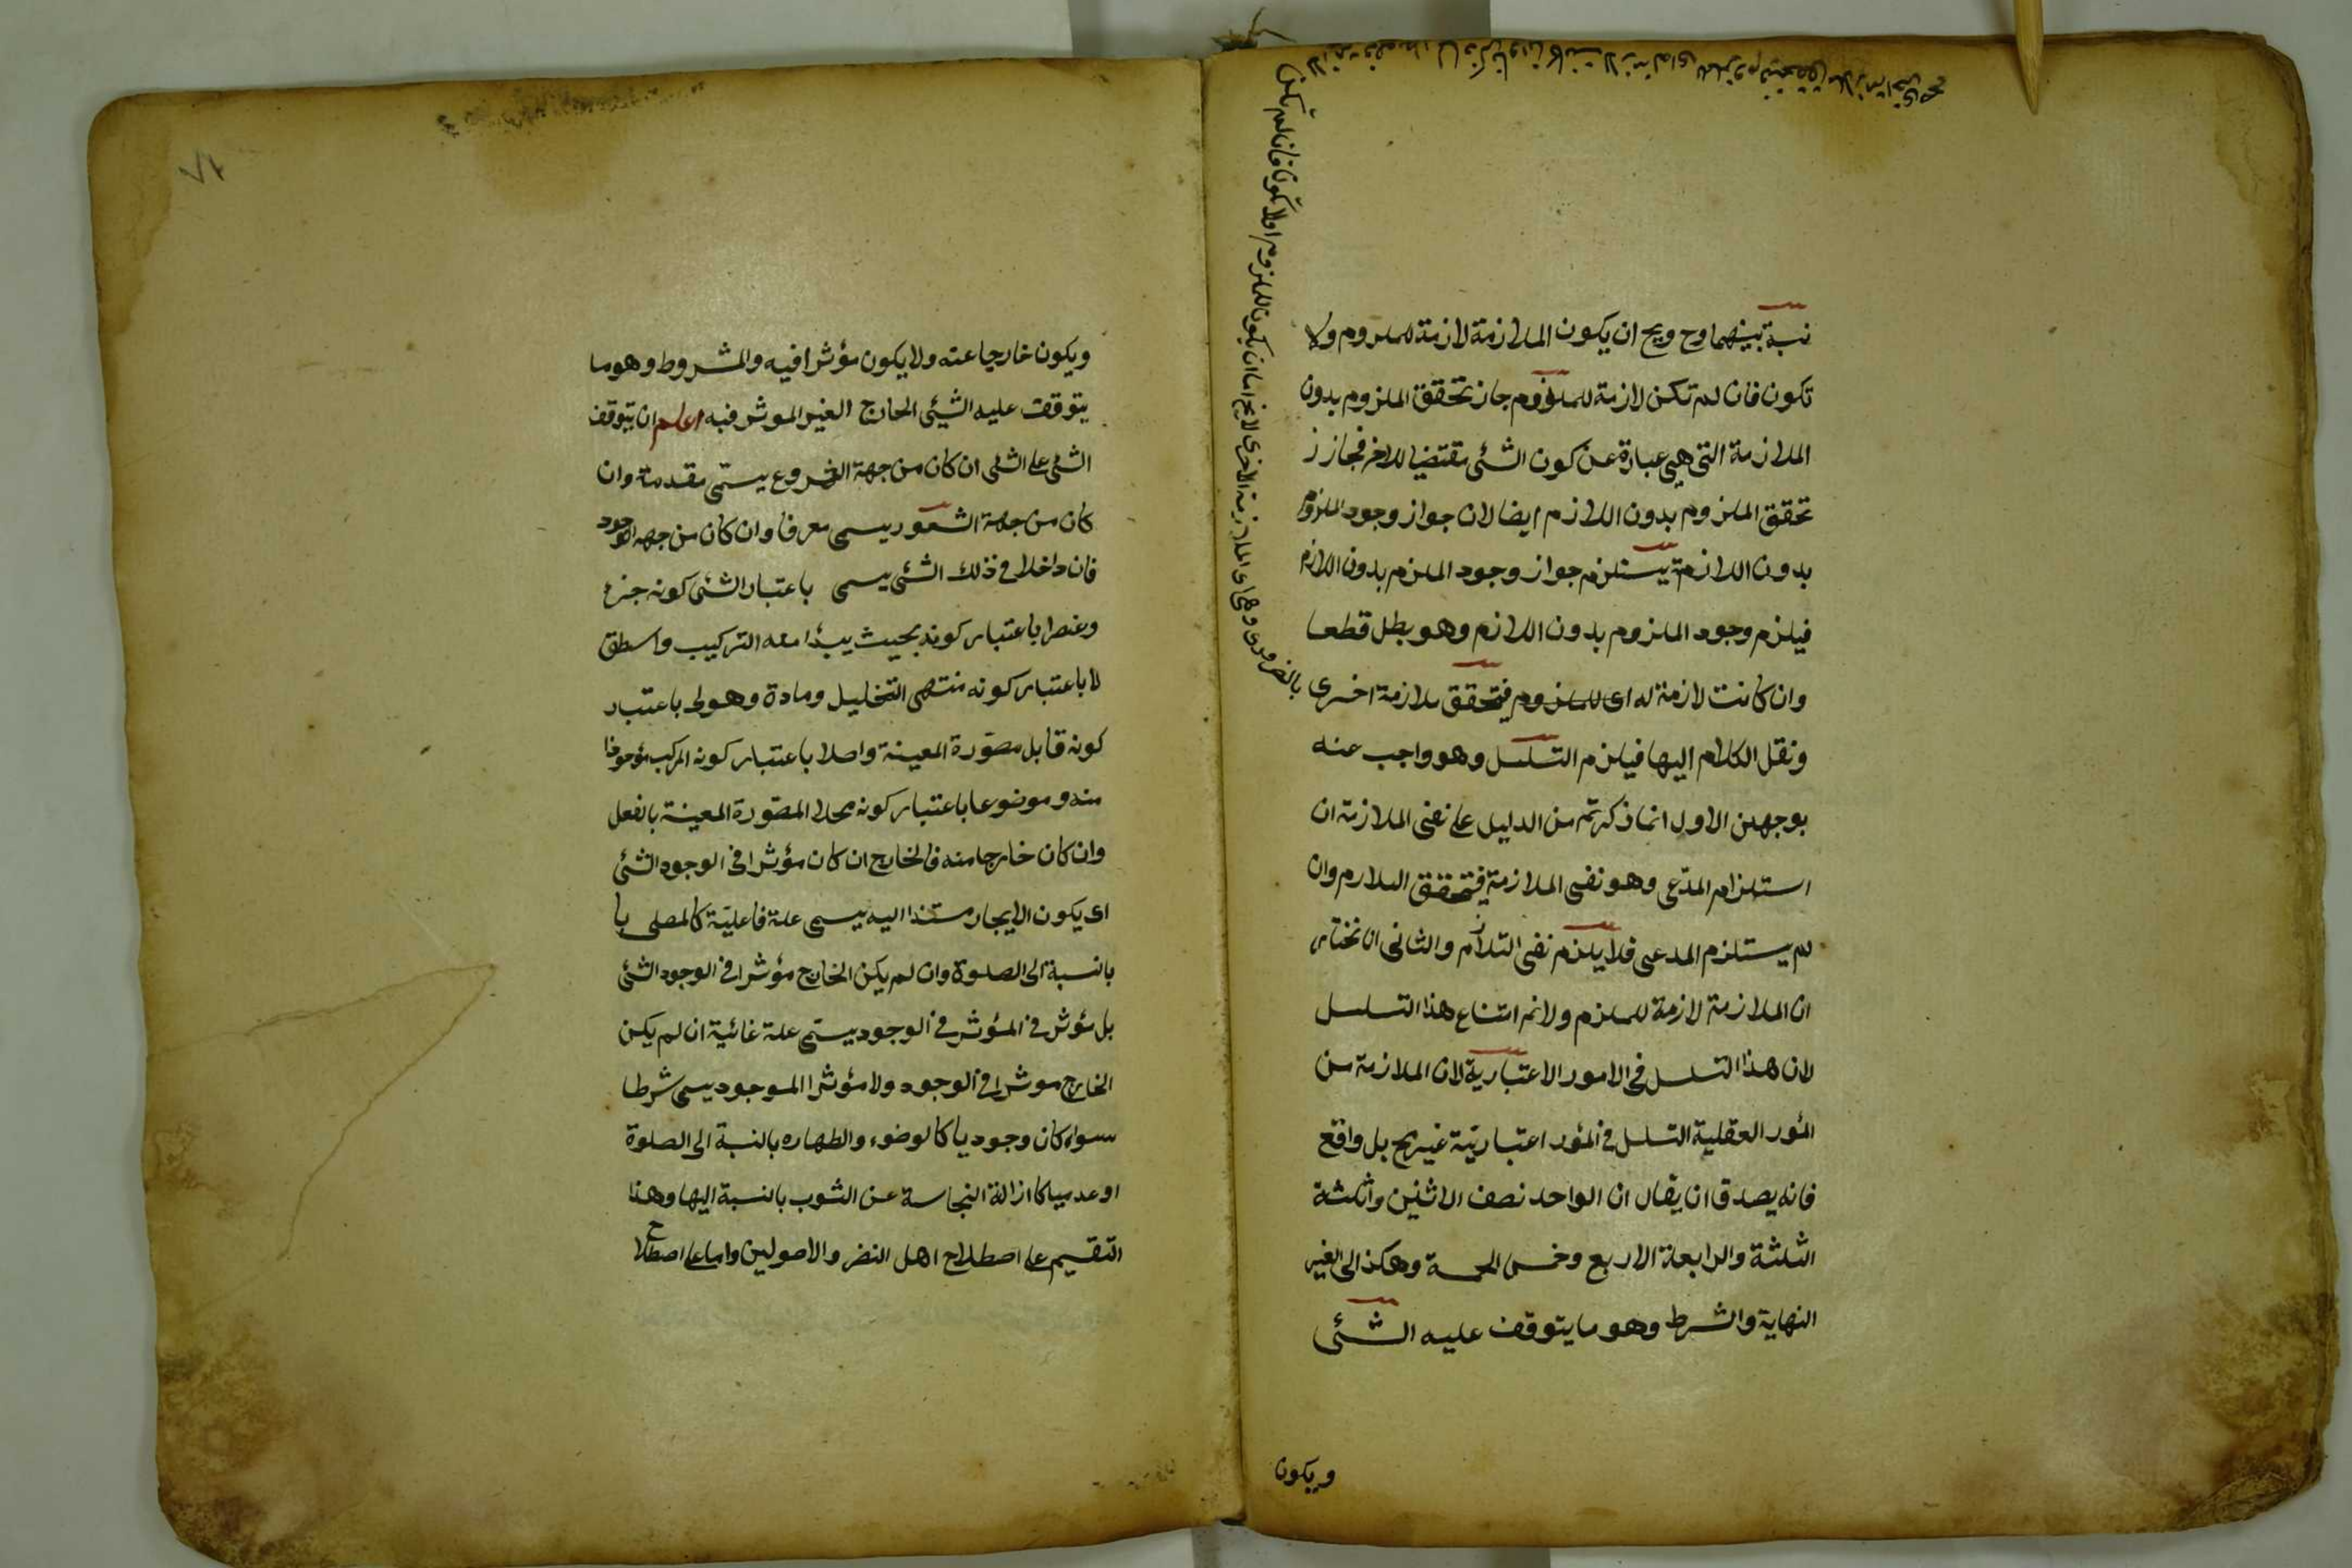 نسبة بينهما وح ويح ان يكون الملازمة لازمة للملزوم ولا
تكون فان لم تكن لازمة للملزوم جاز تحقق الملزوم بدون
الملازمة التى هى عبارة عن كون الشئى مقتضيا للاخر فجاز ز
تحقق الملزوم بدون اللازم ايضا لان جواز وجود الملزوم
بدون اللازمة يستلزم جواز وجود الملزم بدون اللازم
فيلزم وجود الملزوم بدون اللازم وهو بطل قطعا
وان كانت لازمة له اى للملزوم فيتحقق ملازمة اخرى
ونقل الكلام اليها فيلزم التسلسل وهو واجب عنه
بوجهين الاول انما ذكرتم من الدليل على نفى الملازمة ان
استلزام المدّعى وهو نفى الملازمة فيتحقق اللازم وان
لم يستلزم المدعى فلا يلزم نفى التلازم والثانى ان نختار
ان الملازمة لازمة للملزم ولانم امتناع هذا التسلسل
لان هذا التسلسل فى الامور الاعتبارية لان الملازمة من
المؤر العقلية التسلسل فى المؤر اعتباريّة غير مح بل واقع
فانه يصدق ان يقال ان الواحد نصف الاثنين وثلثة
الثلثة والرابعة الاربع وخمس الخمسة وهكذ الى الغير
النهاية والشرط وهو ما يتوقف عليه الشئى
ويكون
بالضرورى وهى اى الملازمة الاخرى لايخ اما ان يكون للملزوم اولا تكون فان لم تكن
وان كانت لازمة له اى للملزوم فيتحقق ملازمة اخرى صح
ويكون خارجا عنه ولا يكون مؤثرا فيه والمشروط وهو ما
يتوقف عليه الشيئى الخارج الغير الموثر فيه اعلم ان يتوقف
الشئ على الشئ ان كان من جهة الشروع يسمّى مقدمة وان
كان من جهة الشعور يسمى معرفا وان كان من جهه الوجود
فان داخلا فى ذلك الشئى يسمى باعتبار الشئى كونه جزء
وعنصرا باعتبار كونه بحيث يبدٔا معه التركيب واسطق
لا باعتبار كونه منتهى التحليل ومادة وهولى باعتبار
كونه قابل مصوّرة المعينة واصلا باعتبار كونه المركب مؤخوذا
منه وموضوعا باعتبار كونه محلا المصوّرة المعينة بالفعل
وان كان خارجا منه فالخارج ان كان مؤثرا فى الوجود الشئى
اى يكون الايجاد مستندا اليه يسمى علة فاعليّة كالمصلى با
بالنسبة الى الصلوة وان لم يكن الخارج مؤثرا فى الوجود الشئى
بل مؤثر فى المؤثر فى الوجود يسمّى علة غائية ان لم يكن
الخارج موثرا فى الوجود ولا مؤثرا الموجود يسمى شرطا
سواء كان وجوديا كالوضوء والطهاره بالنسبة الى الصلوة
اوعدميا كا ازالة النجاسة عن الثوب بالنسبة اليها وهذا
التقيم على اصطلاح اهل النضر والاصولين واما على اصطلاح